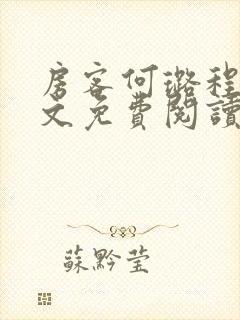 房客何璐程
文免費閱讀
蘇黔瑩